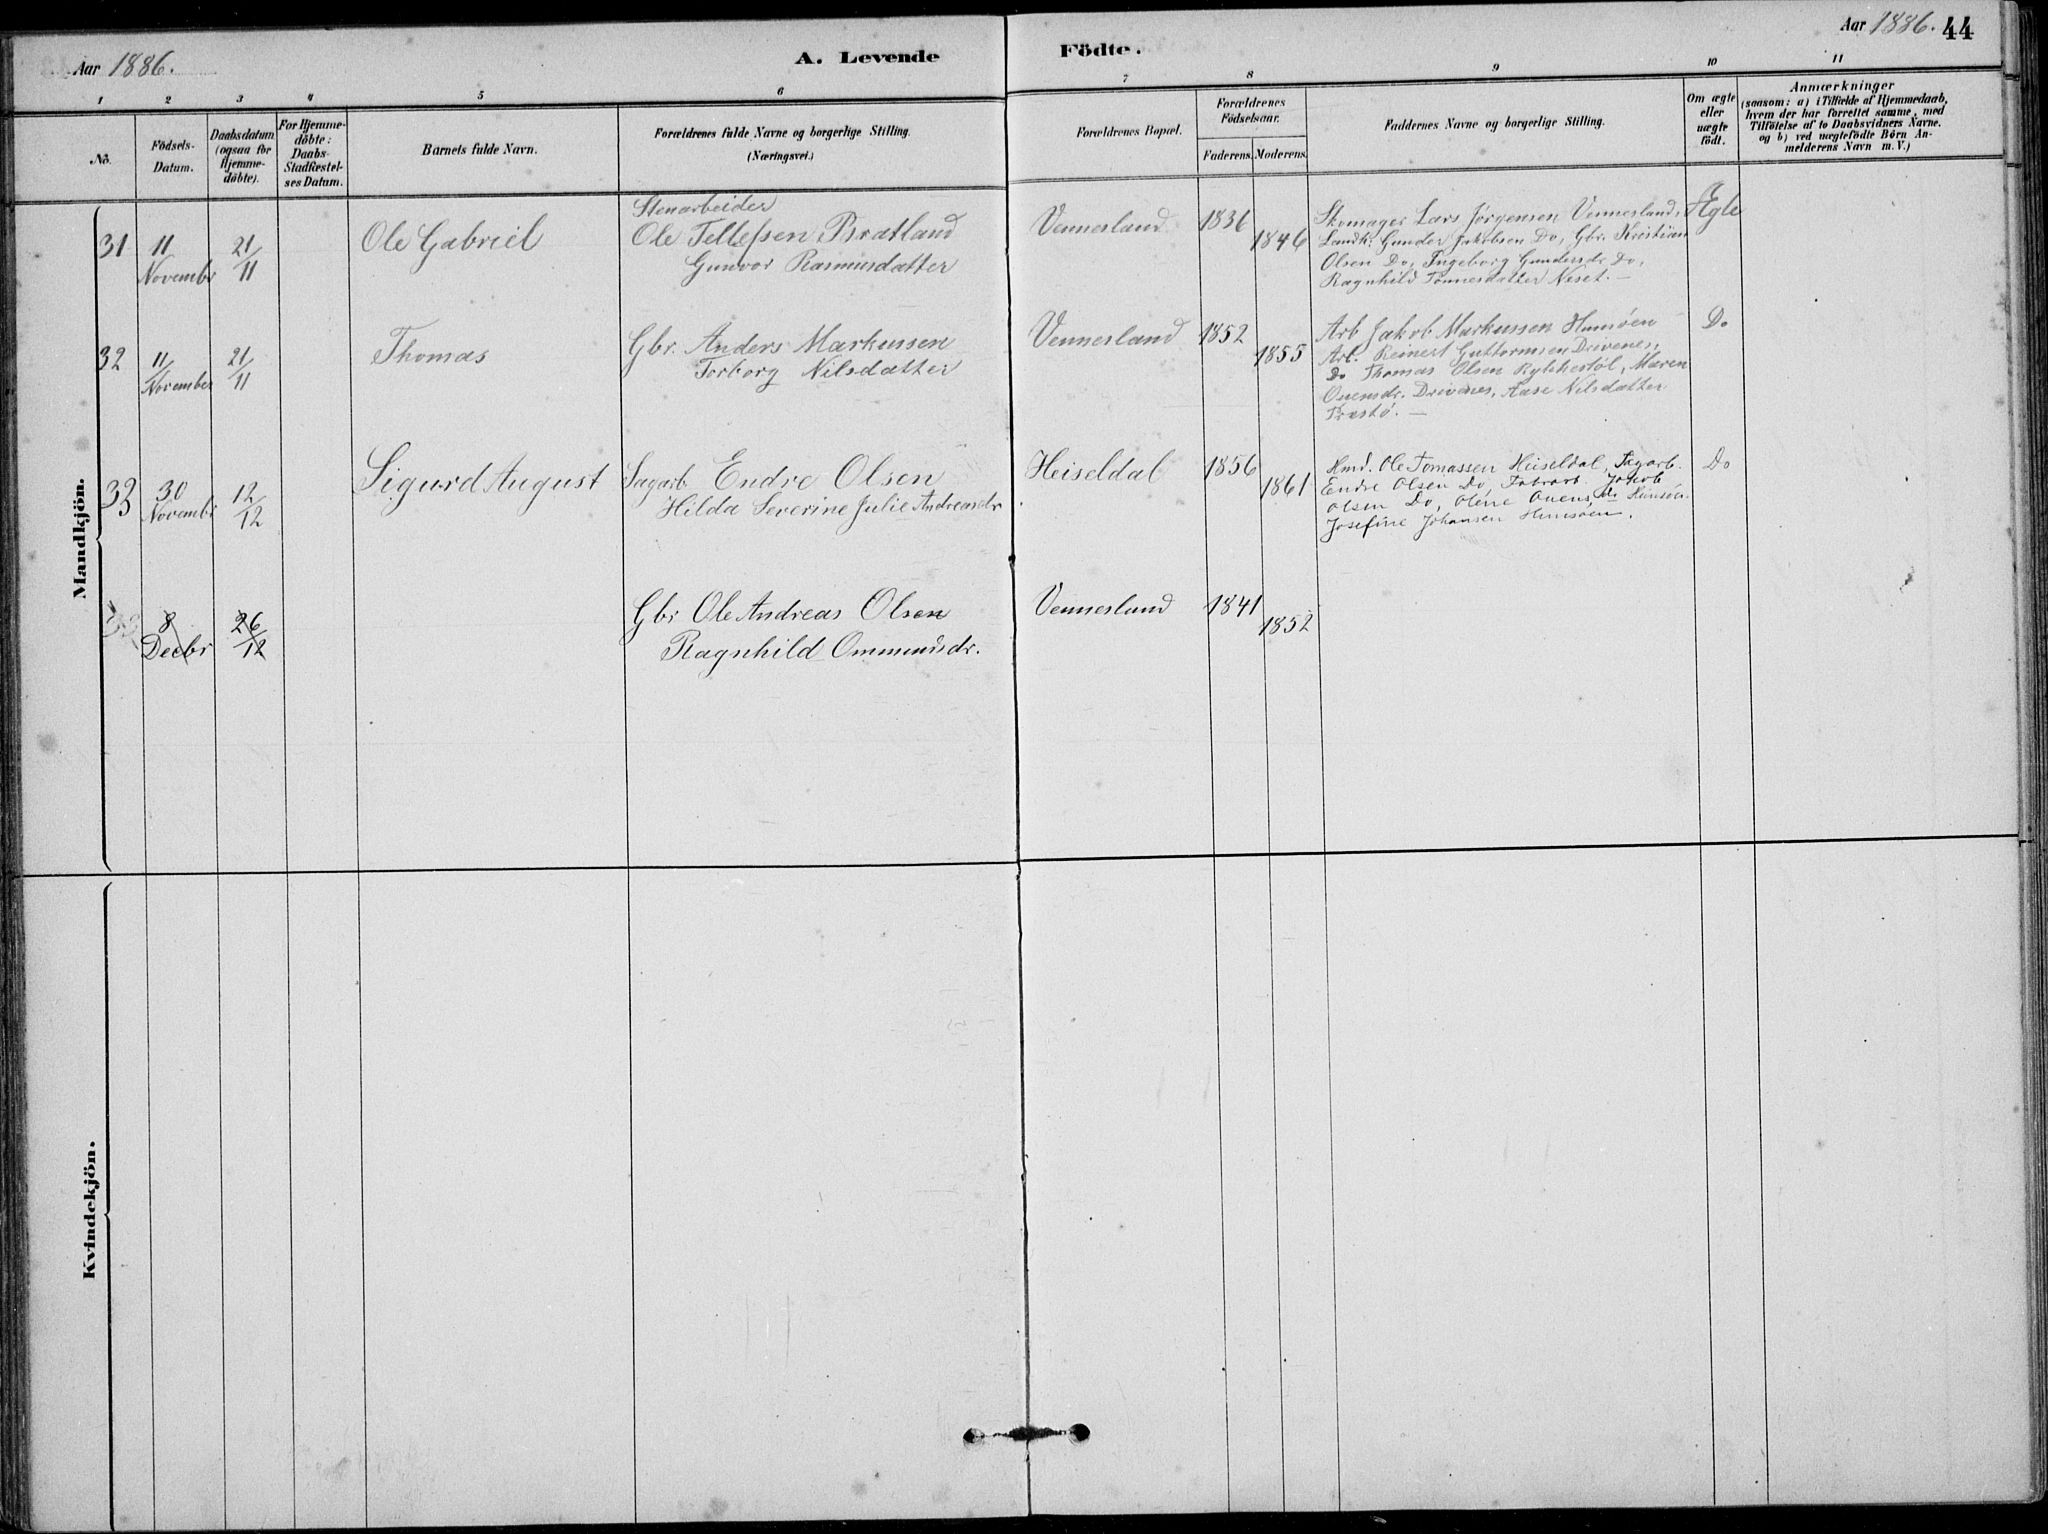 Aar 1886.
A. Levende
Födte.
Aar 1886. 44
1 2 3 4 5 6 7 8 9 10 11
No.
Födsels-
Datum.
Daabsdatum
(ogsaa for
Hjemme-
döbte).
For Hjemme-
döbte:
Daabs-
Stadfæstel-
ses Datum.
Barnets fulde Navn.
Forældrenes fulde Navne og borgerlige Stilling.
(Næringsvei.)
Forældrenes Bopæl.
Forældrenes
Födselsaar.
Faderens. Moderens.
Faddernes Navne og borgerlige Stilling.
Om ægte
eller
uægte
födt.
Anmærkninger
(saasom: a) i Tilfælde af Hjemmedaab,
hvem der har forrettet samme, med
Tilföielse af to Daabsvidners Navne.
og b) ved uægtefödte Börn An-
melderens Navn m. V.)
Mandkjön.
31
11
Novembr
21/11
Ole Gabriel
Stenarbeider
Ole Tellefsen Bratland
Gunvor Rasmusdatter
Vennesland
1836
1846
Skomager Lars Jørgensen Vennesland,
Landh. Gunder Jakobsen Do, Gbr. Kristian
Olsen Do, Ingeborg Gundersdr Do,
Ragnhild Tønnesdatter Neset. —
Ægte
32
11
November
21/11
Thomas
Gbr. Anders Markussen
Torborg Nilsdatter
Vennesland
1852
1855
Arb Jakob Markussen Hunsøen
Arb. Reinert Guttormsen Drivenes,
Do Thomas Olsen Rykkestøl, Maren
Ouensdr. Drivenes, Aase Nilsdatter
Præstø. —
Do
33
30
Novembr
12/12
Sigurd August
Sagarb Endre Olsen
Hilda Severine Julie Andreasdr
Heiseldal
1856
1861
Hmd. Ole Tomassen Heiseldal, Sagarb.
Endre Olsen Do, Fabrarb. Jakob
Olsen Do, Oline Ouensdr Hunsøn
Josefine Johansen Hunsøen.
Do
8
Decbr
26/12
Gbr Ole Andreas Olsen
Ragnhild Ommundsdr.
Vennesland
1841
1852
Kvindekjön.